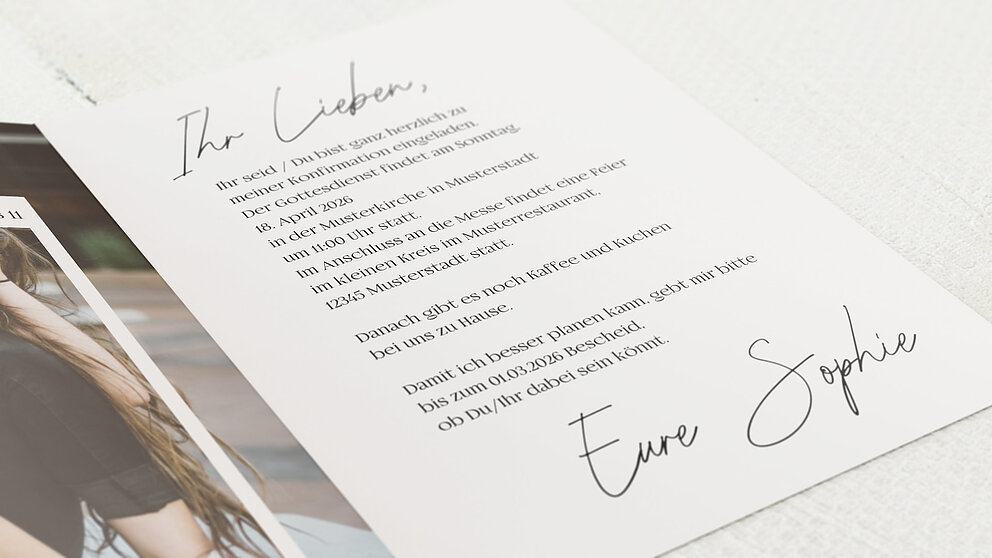 Ihr Lieben,
Ihr seid / Du bist ganz herzlich zu
meiner Konfirmation eingeladen.
Der Gottesdienst findet am Sonntag,
18. April 2026
in der Musterkirche in Musterstadt
um 11:00 Uhr statt.
Im Anschluss an die Messe findet eine Feier
im kleinen Kreis im Musterrestaurant,
12345 Musterstadt statt.
Danach gibt es noch Kaffee und Kuchen
bei uns zu Hause.
Damit ich besser planen kann, gebt mir bitte
bis zum 01.03.2026 Bescheid,
ob Du/Ihr dabei sein könnt.
Eure Sophie